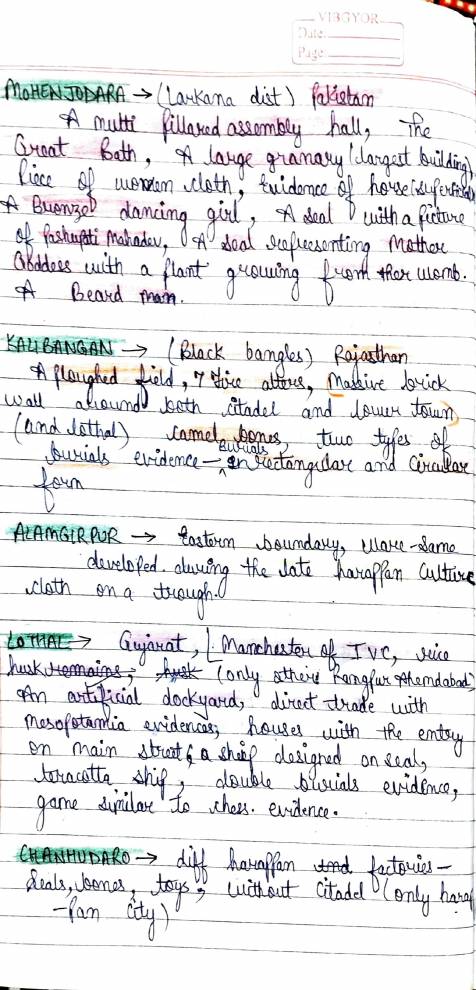 VIBGYOR
Date:
Page:
MOHENJODARA → (Larkana dist) Pakistan
A multi pillared assembly hall, The
Great Bath, A large granary (largest building)
Piece of women cloth, Evidence of horse (superficial)
A Bronzed dancing girl, A seal with a picture
of Pashupti Mahadev, A seal representing Mother
Goddess with a plant growing from her womb.
A Beard man.
KALIBANGAN → (Black bangles) Rajasthan
A ploughed field, 7 Fire alters, Massive brick
wall around both citadel and lower town
(and lothal) camel bones, two types of
burials evidence – Burials in rectangular and Circular
form
ALAMGIRPUR → Eastern boundary, ware-same
developed during the late harappan culture
cloth on a trough.
LOTHAL → Gujarat, [Manchester of IVC, rice
husk remains; husk (only other Rangpur Ahemdabad)
An artificial dockyard, direct trade with
Mesopotamia evidences, houses with the entry
on main street, a ship designed on seal,
teracotta ship, double burials evidence,
game similar to chess. evidence.
CHANHUDARO → diff harappan and factories –
Seals, bones, toys; without citadel (only harap
-pan city)